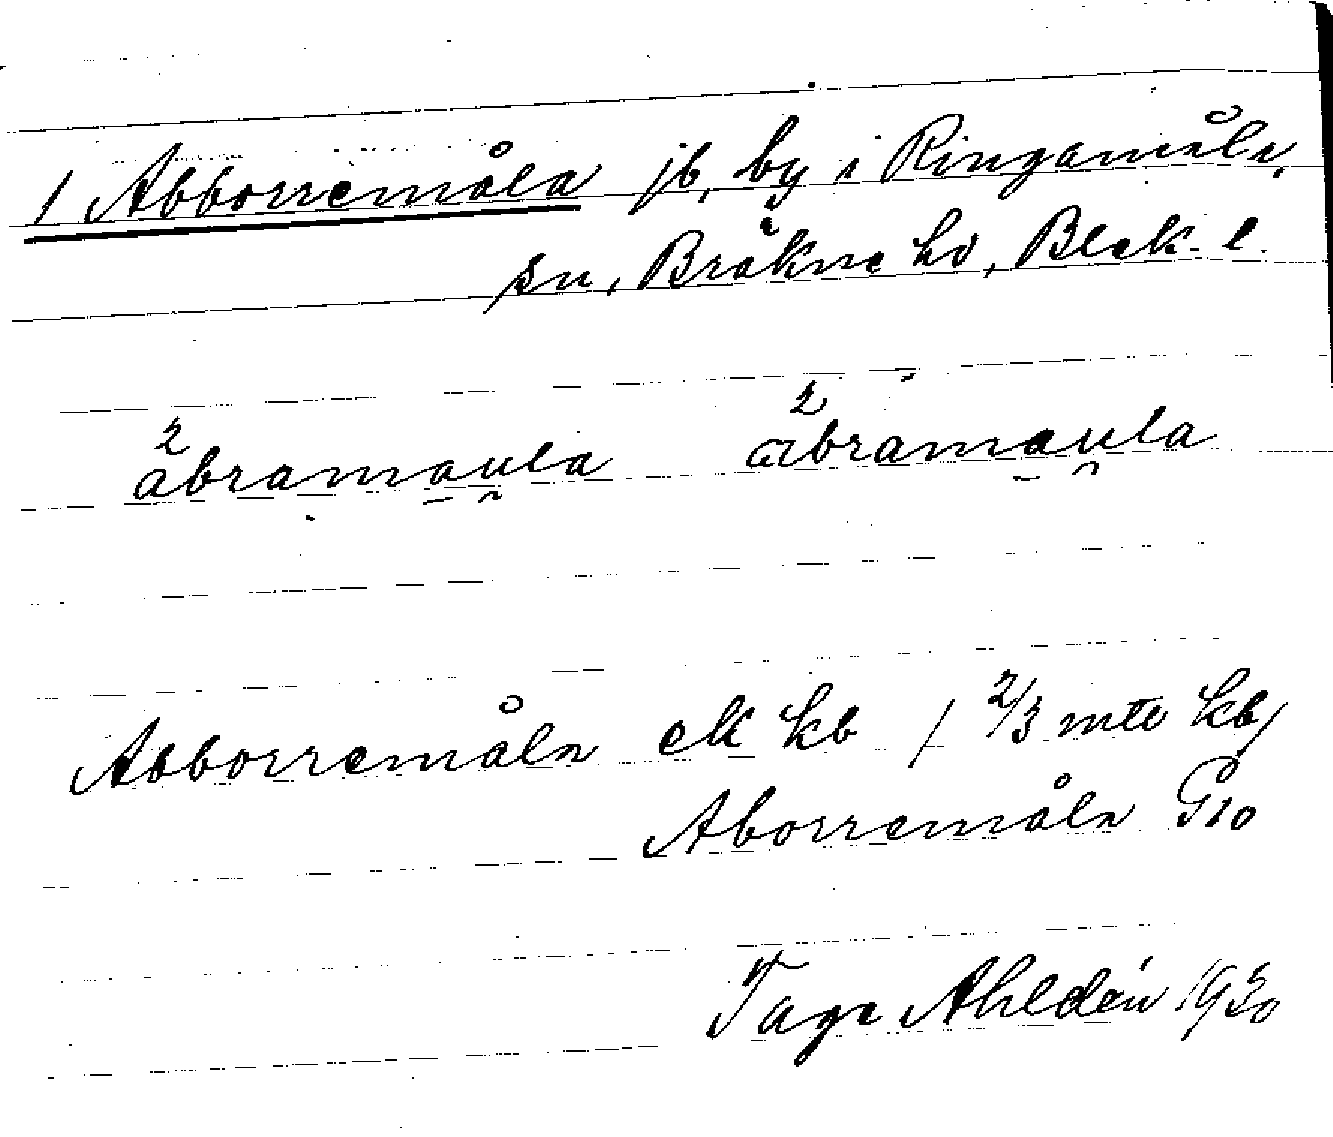 1 Abborremåla jb, by i Ringamåla
sn, Bräkne hd, Blek. l.
²abramau̯la ²abramau̯la
Abborremåla ek kb / 2/3 mtl kb/
Aborremåla G10
Tage Ahldén 1930